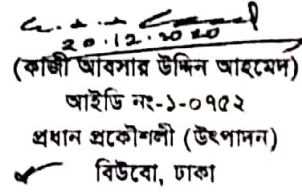 ২০.১২.২০২০
(কাজী আবসার উদ্দিন আহমেদ)
আইডি নং-১-০৭৫২
প্রধান প্রকৌশলী (উৎপাদন)
বিউবো, ঢাকা